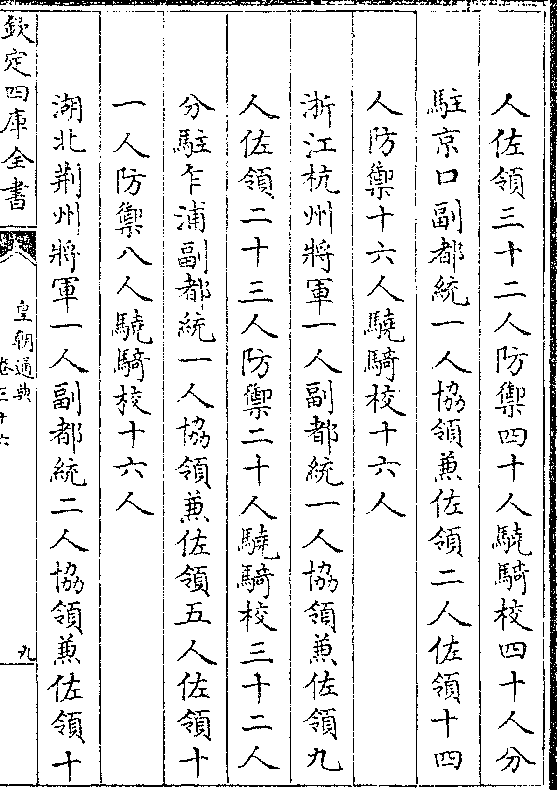 人佐領三十二人防禦四十人驍騎校四十人分
駐京口副都統一人協領兼佐領二人佐領十四
人防禦十六人驍騎校十六人
浙江杭州將軍一人副都統一人協領兼佐領九
人佐領二十三人防禦二十人驍騎校三十二人
分駐乍浦副都統一人協領兼佐領五人佐領十
一人防禦八人驍騎校十六人
湖北荆州將軍一人副都統二人協領兼佐領十
欽定四庫全書
皇朝通典
卷三十六
九